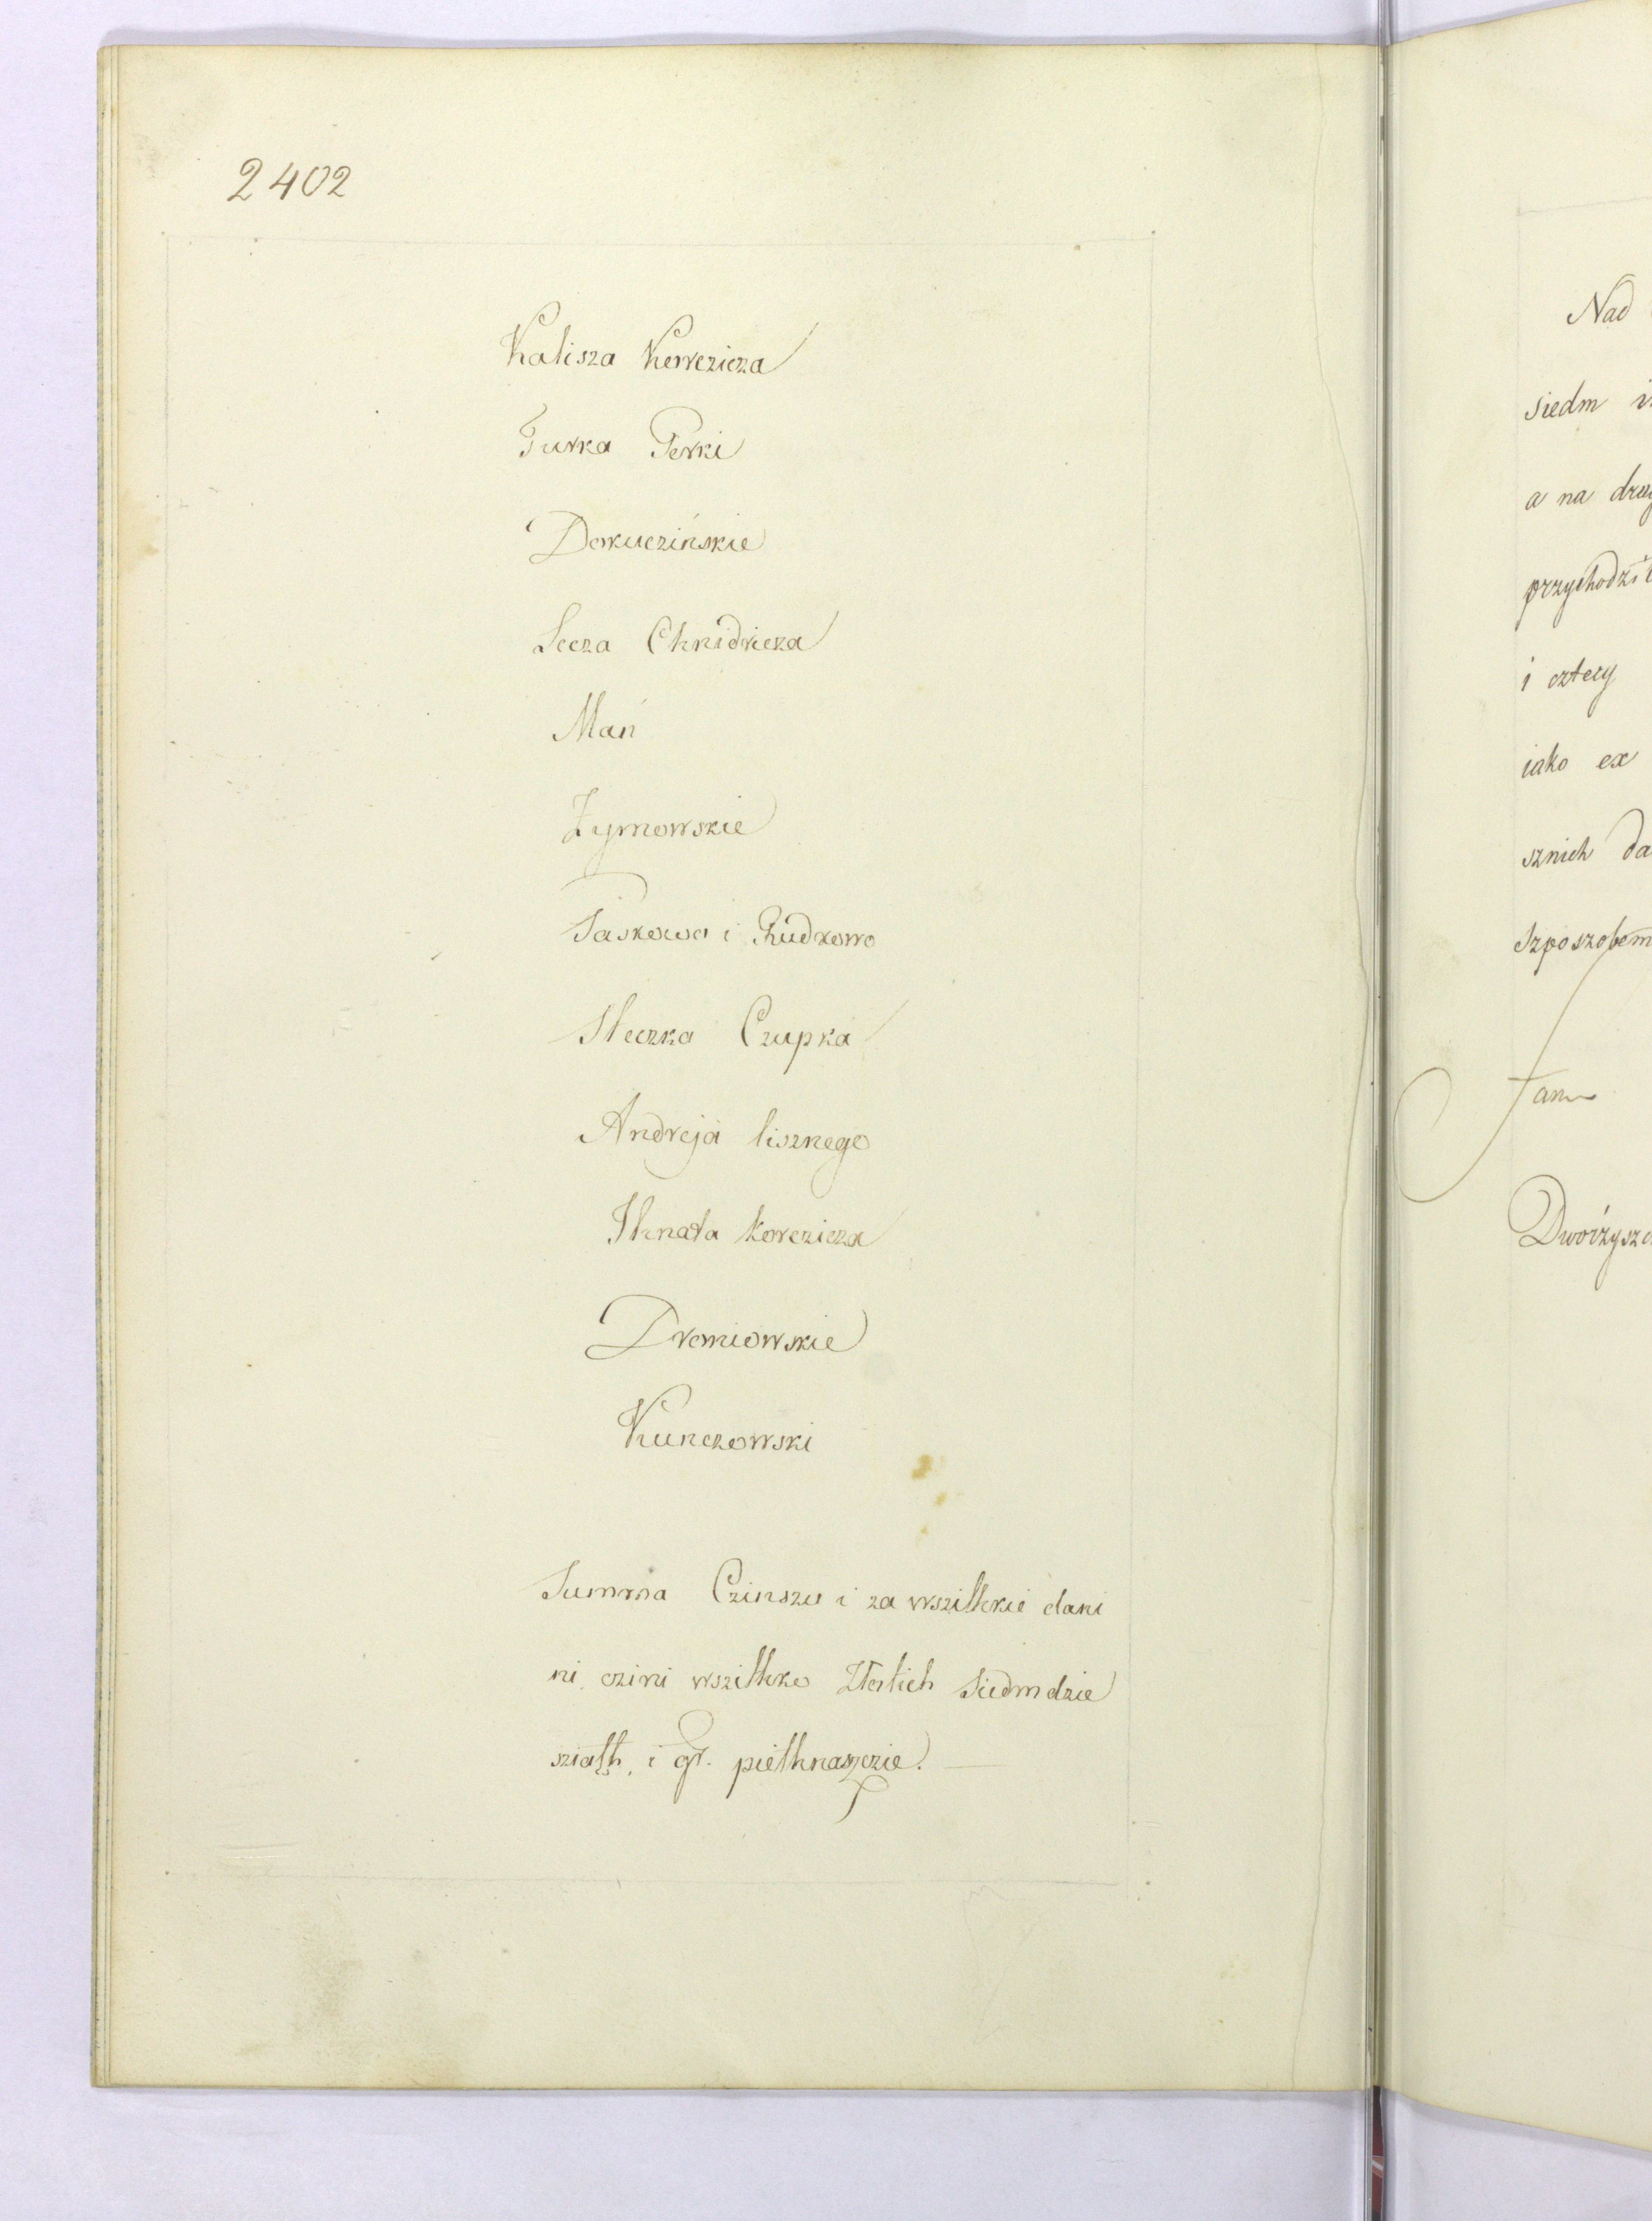 2402
Kalisza Kewczicza
Jurka Perki
Dokuczińskie
Secza Chnidricza
Mań
Zymowskie
Paskowo i Rudkowo
Steczka Czupka
Andreja lisznego
Ihnata Korczicza
Dremiowskie
Kunczowski
Summa Czinszu i za wszithkie dani
ni czini wszithko Złotich Siedmdzie
sziąth, i gr. piethnaszczie.
Nad
siedm
a na
przychodzi
i cztery
iako ex
sznich
szposzobem
Tam